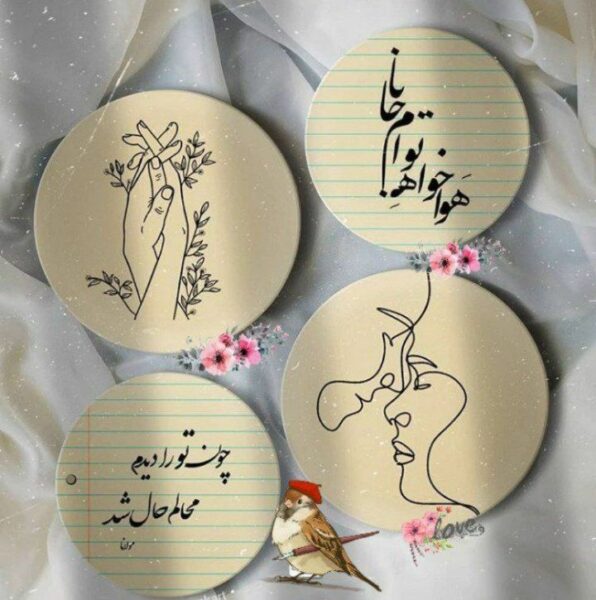 هَوا خواهِ تواَم جانا
چون تو را دیدم
محالم حال شد
مولانا
love